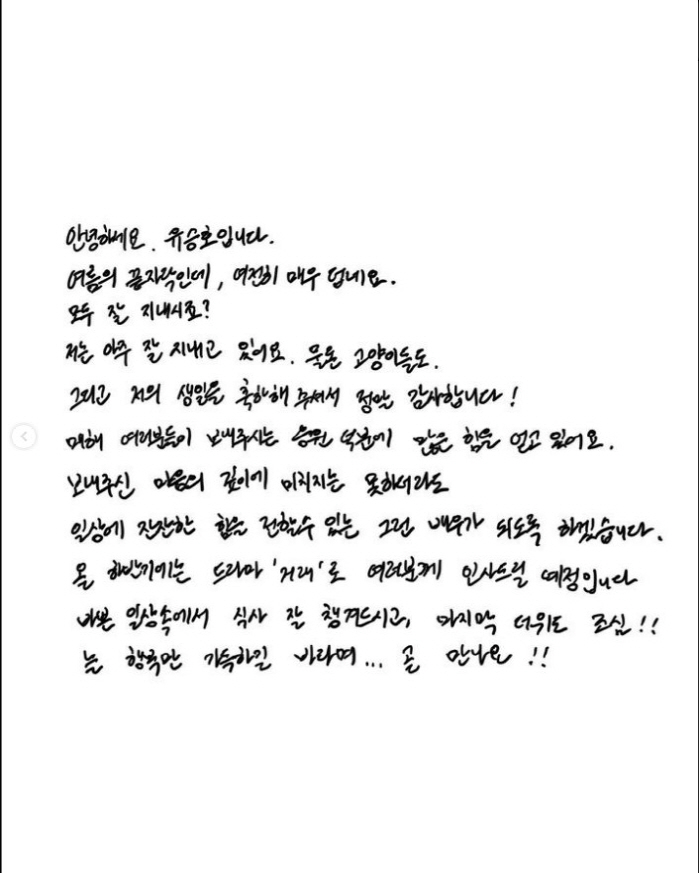 안녕하세요. 유승호입니다.
여름의 끝자락인데, 여전히 매우 덥네요.
모두 잘 지내시죠?
저는 아주 잘 지내고 있어요. 물론 고양이들도.
그리고 저의 생일을 축하해 주셔서 정말 감사합니다!
매해 여러분들이 보내주시는 응원 덕분에 많은 힘을 얻고 있어요.
보내주신 마음의 깊이에 미치지는 못하더라도
일상에 잔잔한 힘을 전할수 있는 그런 배우가 되도록 하겠습니다.
올 하반기에는 드라마 '거래'로 여러분께 인사드릴 예정입니다
바쁜 일상속에서 식사 잘 챙겨드시고, 마지막 더위도 조심!!
늘 행복만 가득하길 바라며... 곧 만나요!!